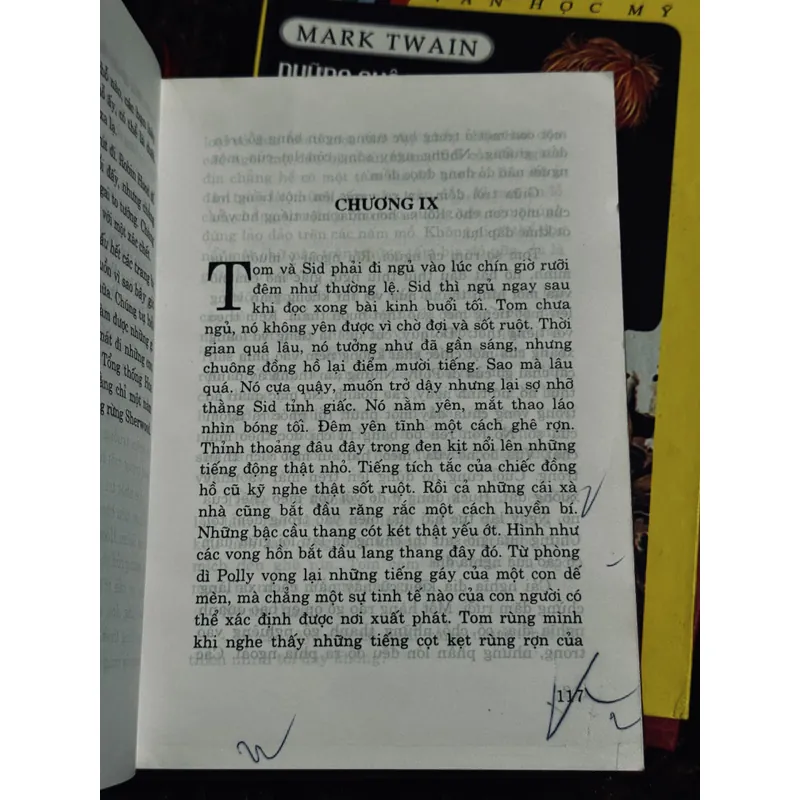 VĂN HỌC MỸ
MARK TWAIN
CHƯƠNG IX
Tom và Sid phải đi ngủ vào lúc chín giờ rưỡi
đêm như thường lệ. Sid thì ngủ ngay sau
khi đọc xong bài kinh buổi tối. Tom chưa
ngủ, nó không yên được vì chờ đợi và sốt ruột. Thời
gian quá lâu, nó tưởng như đã gần sáng, nhưng
chuông đồng hồ lại điểm mười tiếng. Sao mà lâu
quá. Nó cựa quậy, muốn trở dậy nhưng lại sợ nhỡ
thằng Sid tỉnh giấc. Nó nằm yên, mắt thao láo
nhìn bóng tối. Đêm yên tĩnh một cách ghê rợn.
Thỉnh thoảng đâu đây trong đen kịt nổi lên những
tiếng động thật nhỏ. Tiếng tích tắc của chiếc đồng
hồ cũ kỹ nghe thật sốt ruột. Rồi cả những cái xà
nhà cũng bắt đầu răng rắc một cách huyền bí.
Những bậc cầu thang cót két thật yếu ớt. Hình như
các vong hồn bắt đầu lang thang đây đó. Từ phòng
dì Polly vọng lại những tiếng gáy của một con dế
mèn, mà chẳng một sự tinh tế nào của con người có
thể xác định được nơi xuất phát. Tom rùng mình
khi nghe thấy những tiếng cọt kẹt rùng rợn của
117